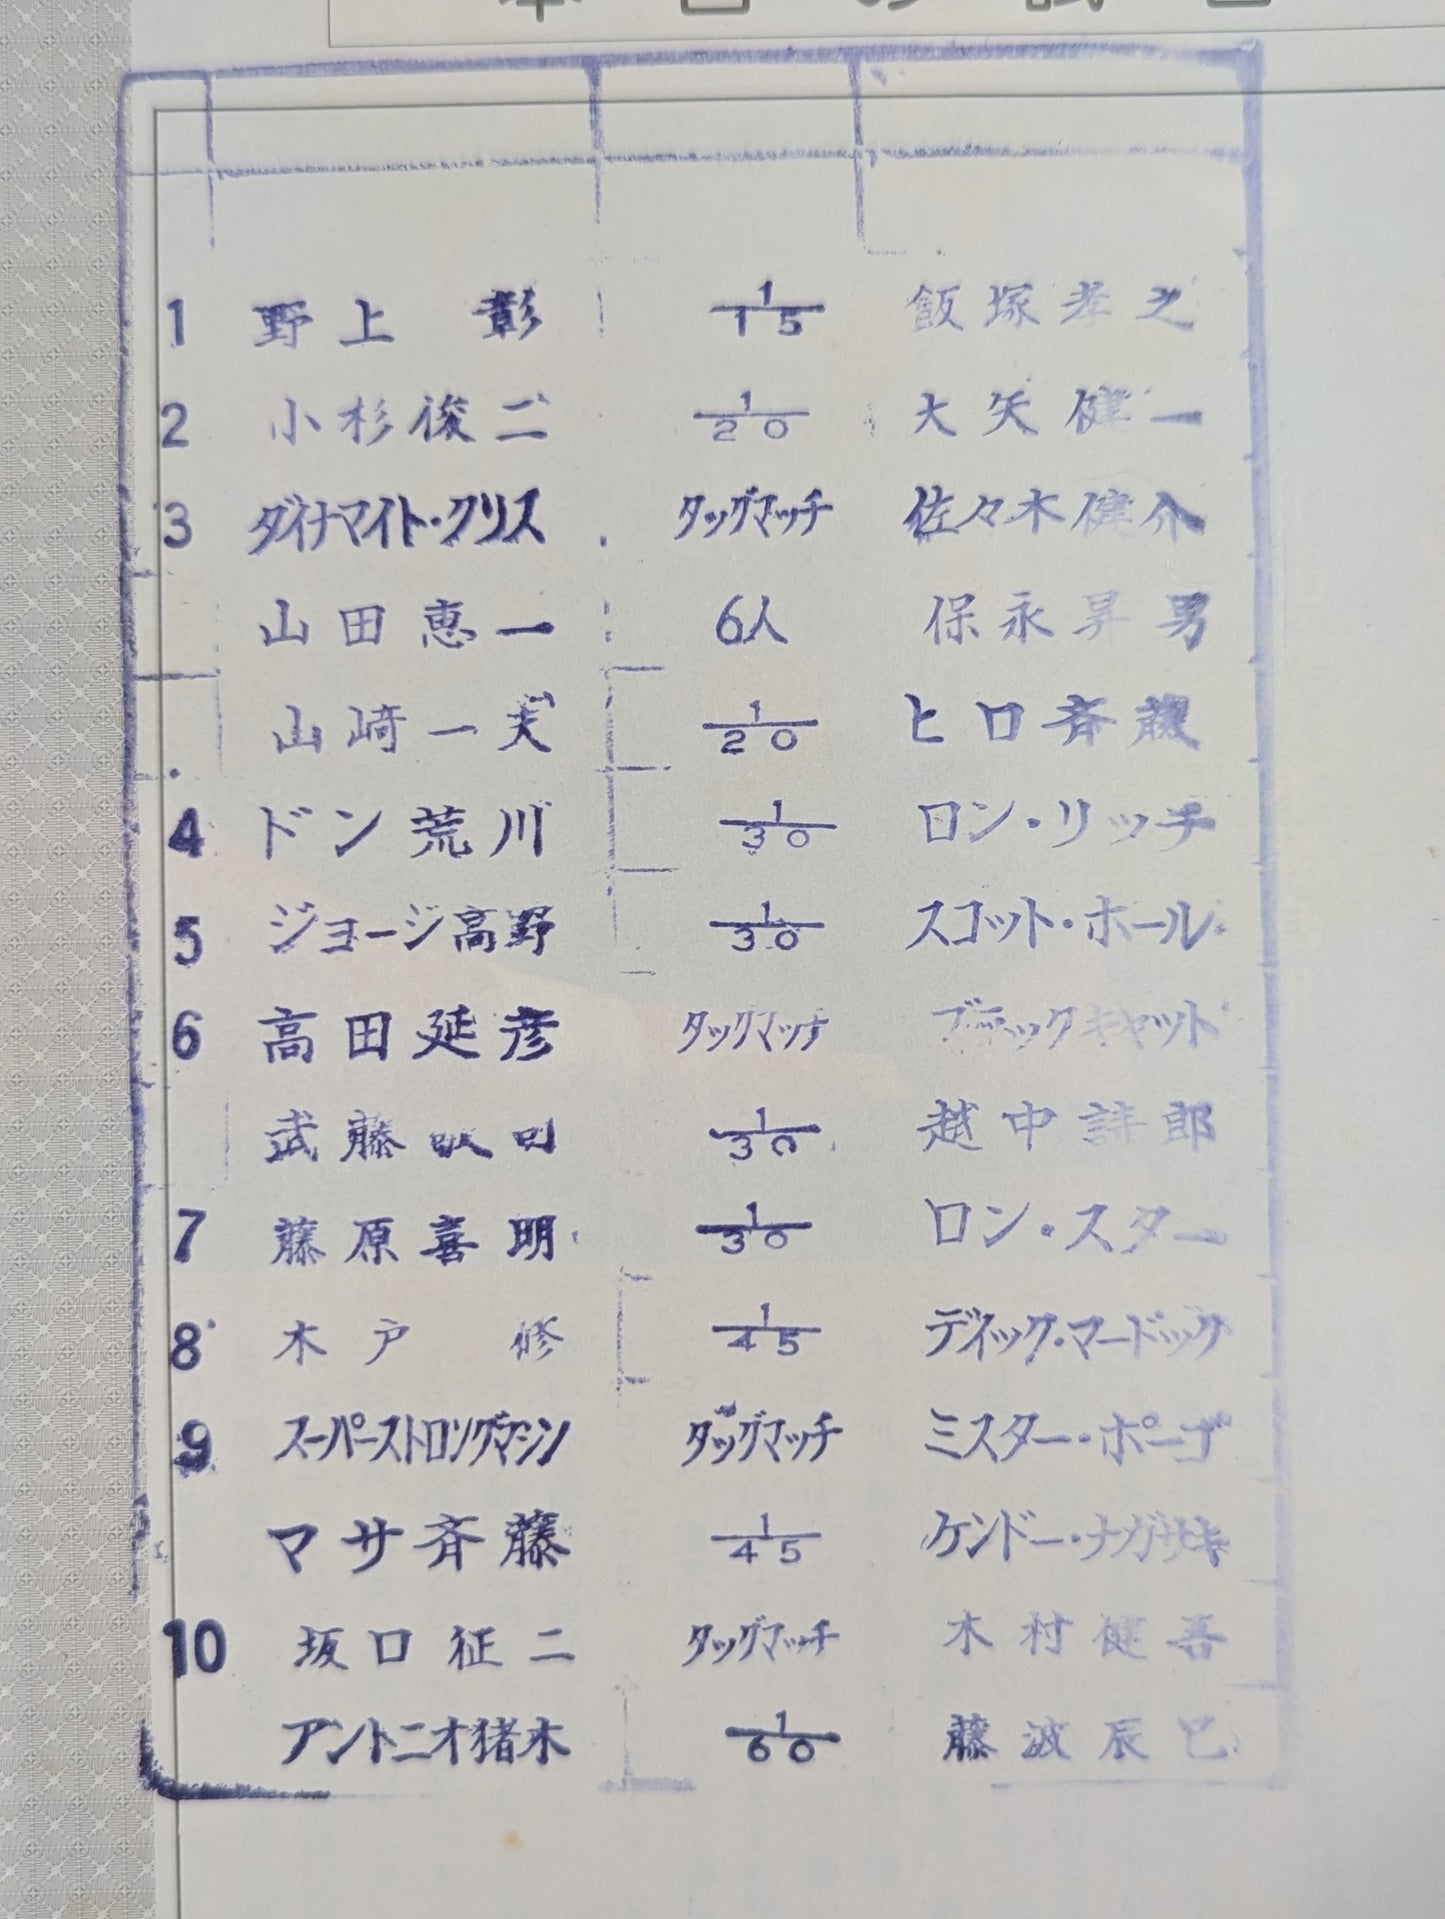 1 野上 彰 1/15 飯塚孝之
2 小杉俊二 1/20 大矢健一
3 ダイナマイト・クリス タッグマッチ 佐々木健介
山田恵一 6人 保永昇男
山崎一夫 1/20 ヒロ斉藤
4 ドン荒川 1/30 ロン・リッチ
5 ジョージ高野 1/30 スコット・ホール
6 高田延彦 タッグマッチ ブラックキャット
武藤 1/30 越中詩郎
7 藤原喜明 1/30 ロン・スター
8 木戸 修 1/45 ディック・マードック
9 スーパーストロングマシン タッグマッチ ミスター・ポーゴ
マサ斉藤 1/45 ケンドー・ナガサキ
10 坂口征二 タッグマッチ 木村健吾
アントニオ猪木 1/60 藤波辰巳